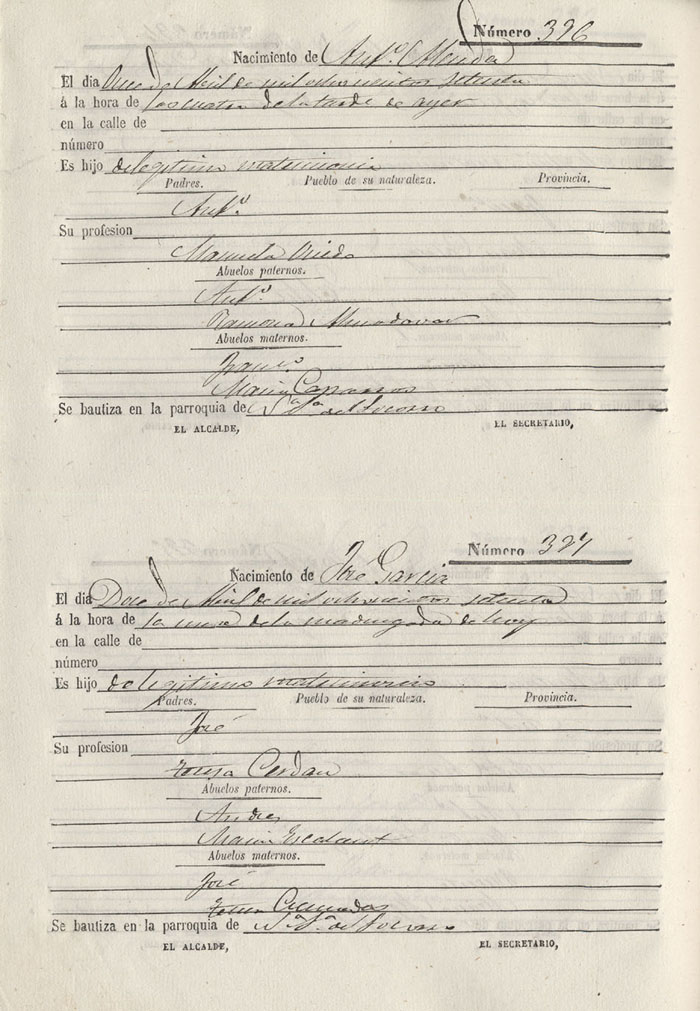 Número 326
Nacimiento de Antº
El dia Once de Abril de mil ochocientos setenta
á la hora de las cuatro de la tarde de ayer
en la calle de
número
Es hijo de legitimo matrimonio
Padres. Pueblo de su naturaleza. Provincia.
Antº
Su profesion
Manuela Oviedo
Abuelos paternos.
Antº
Ramona Almodovar
Abuelos maternos.
Franco
Maria Caparros
Se bautiza en la parroquia de N.ª S.ª del Socorro
EL ALCALDE, EL SECRETARIO,
Número 327
Nacimiento de José Garcia
El dia Doce de Abril de mil ochocientos setenta
á la hora de la una de la madrugada de hoy
en la calle de
número
Es hijo de legitimo matrimonio
Padres. Pueblo de su naturaleza. Provincia.
José
Su profesion
Cerdan
Abuelos paternos.
Andres
Maria
Abuelos maternos.
José
Se bautiza en la parroquia de N.ª S.ª del Socorro
EL ALCALDE, EL SECRETARIO,